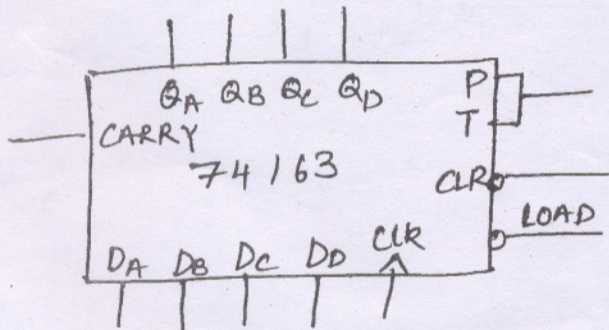 QA QB QC QD P
T
CARRY
74163
CLR
LOAD
DA DB DC DD CLK